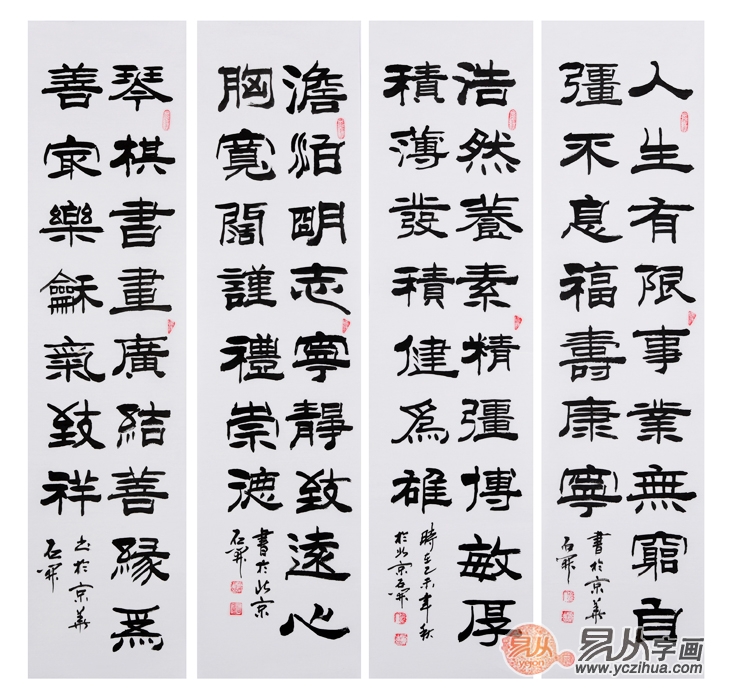 人生有限事業無窮自
彊不息福壽康寧
書於京華
石開
浩然養素精彊博敏厚
積薄發積健為雄
時在乙未年秋
於北京石開
澹泊明志寧靜致遠心
胸寬闊謹禮崇德
書於北京
石開
琴棋書畫廣結善緣為
善最樂龢氣致祥
書於京華
石開
易从字画
www.yczihua.com
易从
yicon